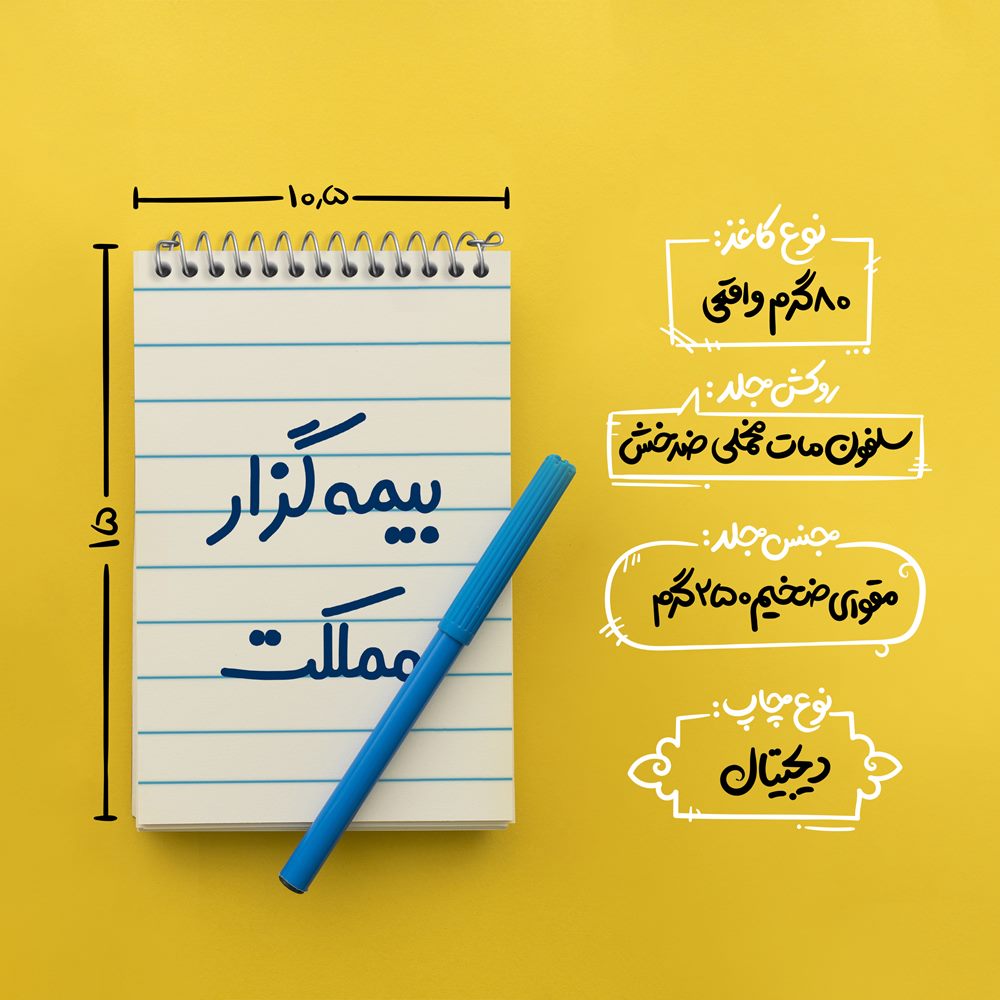 ۱۰,۵
۱۵
بیمه گزار
مملکت
نوع کاغذ:
۸۰ گرم واقعی
روکش جلد:
سلفون مات مخملی ضدخش
جنس جلد:
مقوای ضخیم ۲۵۰ گرم
نوع چاپ:
دیجیتال